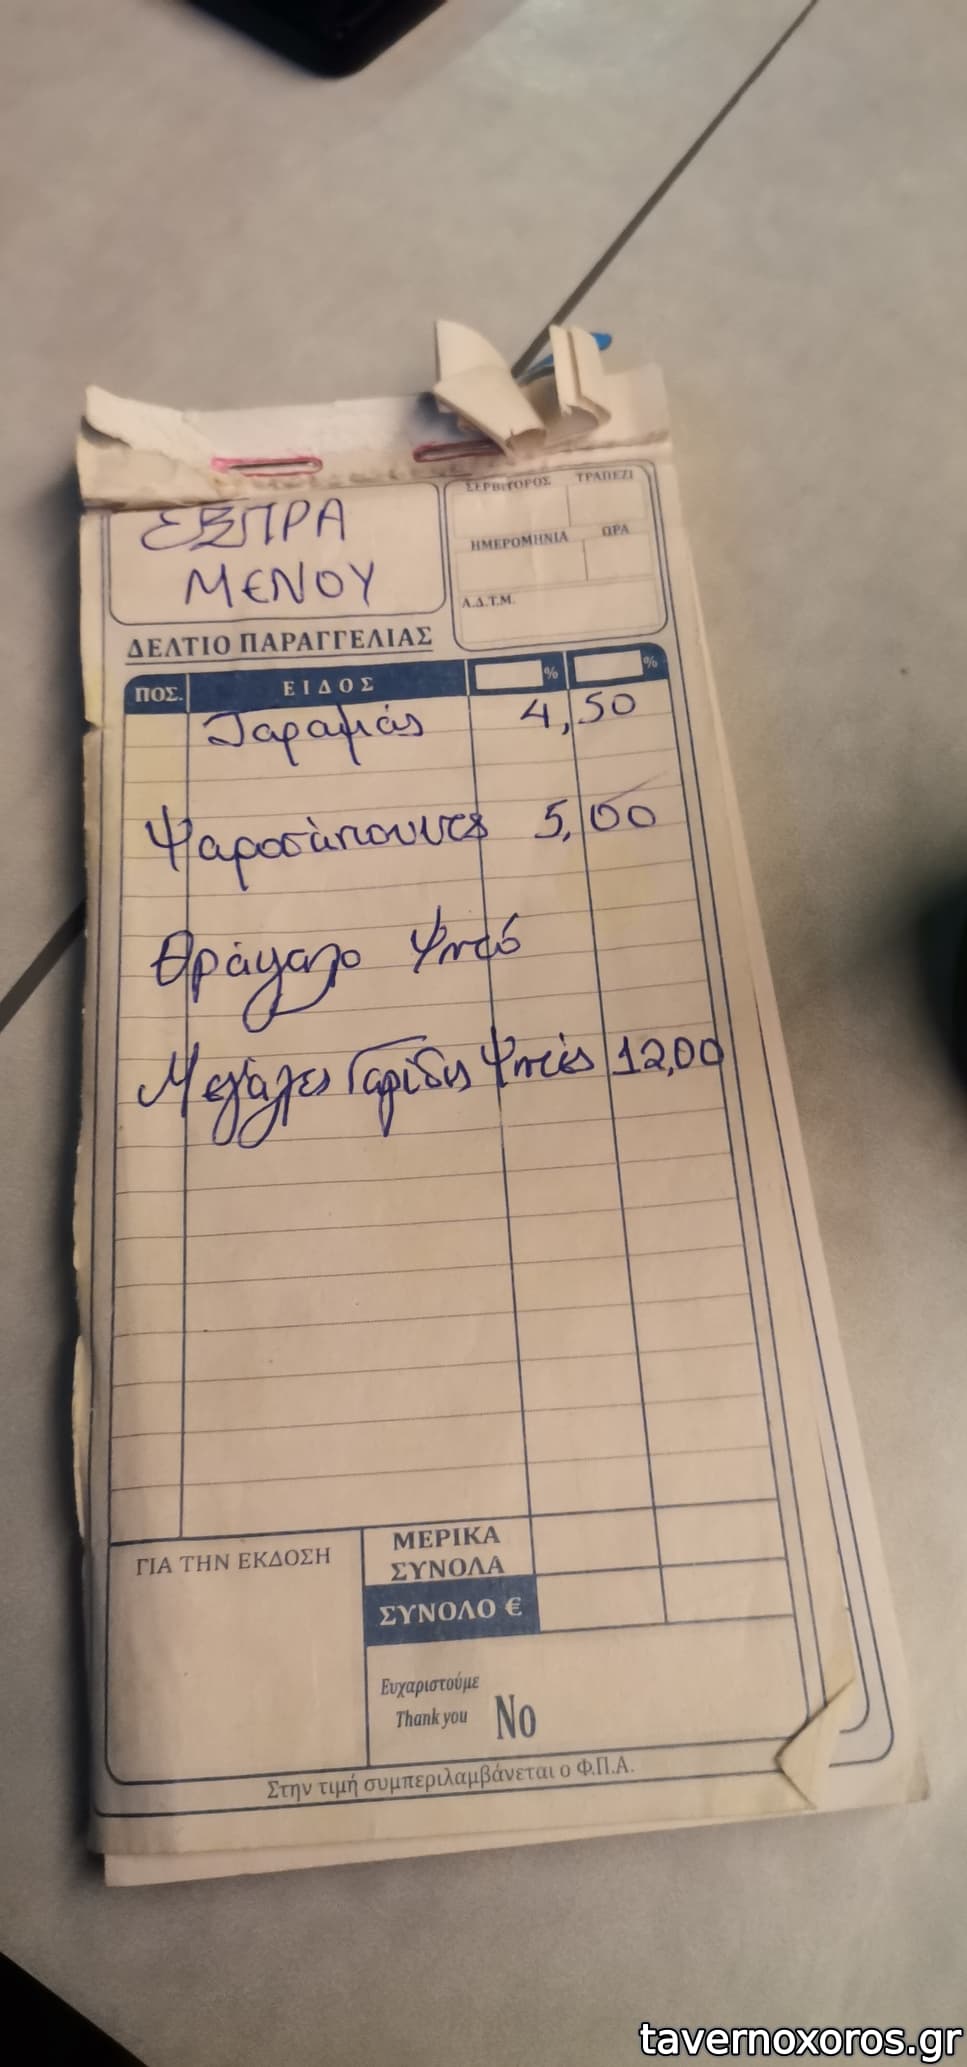 ΣΕΡΒΙΤΟΡΟΣ ΤΡΑΠΕΖΙ
ΕΞΠΡΑ
ΜΕΝΟΥ
ΗΜΕΡΟΜΗΝΙΑ ΩΡΑ
Α.Δ.Τ.Μ.
ΔΕΛΤΙΟ ΠΑΡΑΓΓΕΛΙΑΣ
ΠΟΣ. ΕΙΔΟΣ % %
Ταραμάς 4,50
Ψαροσάπουνες 5,00
Θράψαλο Ψητό
Μεγάλες Γαρίδες Ψητές 12,00
ΓΙΑ ΤΗΝ ΕΚΔΟΣΗ
ΜΕΡΙΚΑ
ΣΥΝΟΛΑ
ΣΥΝΟΛΟ €
Ευχαριστούμε
Thank you No
Στην τιμή συμπεριλαμβάνεται ο Φ.Π.Α.
tavernoxoros.gr